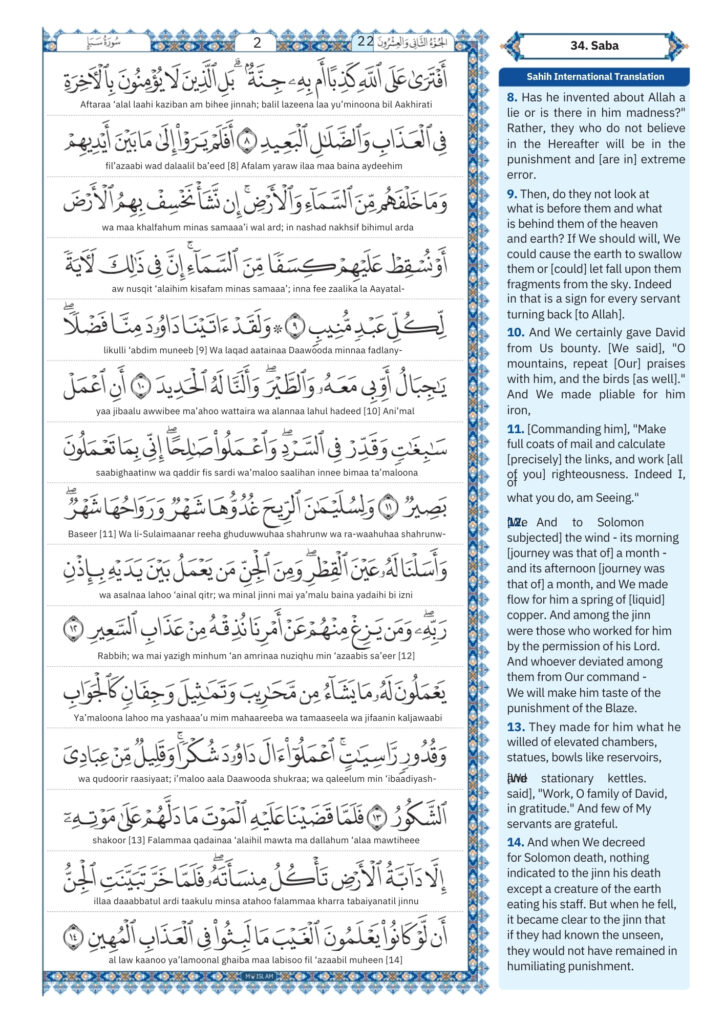 الجُزْءُ الثَّانِي وَالعِشْرُونَ 22
2
سُورَةُ سَبَإٍ
أَفْتَرَىٰ عَلَى ٱللَّهِ كَذِبًا أَم بِهِۦ جِنَّةٌۢ ۗ بَلِ ٱلَّذِينَ لَا يُؤْمِنُونَ بِٱلْـَٔاخِرَةِ
Aftaraa ‘alal laahi kaziban am bihee jinnah; balil lazeena laa yu’minoona bil Aakhirati
فِى ٱلْعَذَابِ وَٱلضَّلَـٰلِ ٱلْبَعِيدِ ٨ أَفَلَمْ يَرَوْا۟ إِلَىٰ مَا بَيْنَ أَيْدِيهِمْ
fil’azaabi wad dalaalil ba’eed [8] Afalam yaraw ilaa maa baina aydeehim
وَمَا خَلْفَهُم مِّنَ ٱلسَّمَآءِ وَٱلْأَرْضِ ۚ إِن نَّشَأْ نَخْسِفْ بِهِمُ ٱلْأَرْضَ
wa maa khalfahum minas samaaa’i wal ard; in nashad nakhsif bihimul arda
أَوْ نُسْقِطْ عَلَيْهِمْ كِسَفًا مِّنَ ٱلسَّمَآءِ ۚ إِنَّ فِى ذَٰلِكَ لَـَٔايَةً
aw nusqit ‘alaihim kisafam minas samaaa’; inna fee zaalika la Aayatal-
لِّكُلِّ عَبْدٍ مُّنِيبٍ ٩ ۞ وَلَقَدْ ءَاتَيْنَا دَاوُۥدَ مِنَّا فَضْلًا ۖ
likulli ‘abdim muneeb [9] Wa laqad aatainaa Daawooda minnaa fadlany-
يَـٰجِبَالُ أَوِّبِى مَعَهُۥ وَٱلطَّيْرَ ۖ وَأَلَنَّا لَهُ ٱلْحَدِيدَ ١٠ أَنِ ٱعْمَلْ
yaa jibaalu awwibee ma’ahoo wattaira wa alannaa lahul hadeed [10] Ani’mal
سَـٰبِغَـٰتٍ وَقَدِّرْ فِى ٱلسَّرْدِ ۖ وَٱعْمَلُوا۟ صَـٰلِحًا ۖ إِنِّى بِمَا تَعْمَلُونَ
saabighaatinw wa qaddir fis sardi wa’maloo saalihan innee bimaa ta’maloona
بَصِيرٌ ١١ وَلِسُلَيْمَـٰنَ ٱلرِّيحَ غُدُوُّهَا شَهْرٌ وَرَوَاحُهَا شَهْرٌ ۖ
Baseer [11] Wa li-Sulaimaanar reeha ghuduwwuhaa shahrunw wa ra-waahuhaa shahrunw-
وَأَسَلْنَا لَهُۥ عَيْنَ ٱلْقِطْرِ ۖ وَمِنَ ٱلْجِنِّ مَن يَعْمَلُ بَيْنَ يَدَيْهِ بِإِذْنِ
wa asalnaa lahoo ‘ainal qitr; wa minal jinni mai ya’malu baina yadaihi bi izni
رَبِّهِۦ ۖ وَمَن يَزِغْ مِنْهُمْ عَنْ أَمْرِنَا نُذِقْهُ مِنْ عَذَابِ ٱلسَّعِيرِ ١٢
Rabbih; wa mai yazigh minhum ‘an amrinaa nuziqhu min ‘azaabis sa’eer [12]
يَعْمَلُونَ لَهُۥ مَا يَشَآءُ مِن مَّحَـٰرِيبَ وَتَمَـٰثِيلَ وَجِفَانٍ كَٱلْجَوَابِ
Ya’maloona lahoo ma yashaaa’u mim mahaareeba wa tamaaseela wa jifaanin kaljawaabi
وَقُدُورٍ رَّاسِيَـٰتٍ ۚ ٱعْمَلُوٓا۟ ءَالَ دَاوُۥدَ شُكْرًا ۚ وَقَلِيلٌ مِّنْ عِبَادِىَ
wa qudoorir raasiyaat; i’maloo aala Daawooda shukraa; wa qaleelum min ‘ibaadiyash-
ٱلشَّكُورُ ١٣ فَلَمَّا قَضَيْنَا عَلَيْهِ ٱلْمَوْتَ مَا دَلَّهُمْ عَلَىٰ مَوْتِهِۦٓ
shakoor [13] Falammaa qadainaa ‘alaihil mawta ma dallahum ‘alaa mawtiheee
إِلَّا دَآبَّةُ ٱلْأَرْضِ تَأْكُلُ مِنسَأَتَهُۥ ۖ فَلَمَّا خَرَّ تَبَيَّنَتِ ٱلْجِنُّ
illaa daaabbatul ardi taakulu minsa atahoo falammaa kharra tabaiyanatil jinnu
أَن لَّوْ كَانُوا۟ يَعْلَمُونَ ٱلْغَيْبَ مَا لَبِثُوا۟ فِى ٱلْعَذَابِ ٱلْمُهِينِ ١٤
al law kaanoo ya’lamoonal ghaiba maa labisoo fil ‘azaabil muheen [14]
MW ISLAM
34. Saba
Sahih International Translation
8. Has he invented about Allah a
lie or is there in him madness?"
Rather, they who do not believe
in the Hereafter will be in the
punishment and [are in] extreme
error.
9. Then, do they not look at
what is before them and what
is behind them of the heaven
and earth? If We should will, We
could cause the earth to swallow
them or [could] let fall upon them
fragments from the sky. Indeed
in that is a sign for every servant
turning back [to Allah].
10. And We certainly gave David
from Us bounty. [We said], "O
mountains, repeat [Our] praises
with him, and the birds [as well]."
And We made pliable for him
iron,
11. [Commanding him], "Make
full coats of mail and calculate
[precisely] the links, and work [all
of you] righteousness. Indeed I,
of
what you do, am Seeing."
12. [We And to Solomon
subjected] the wind - its morning
[journey was that of] a month -
and its afternoon [journey was
that of] a month, and We made
flow for him a spring of [liquid]
copper. And among the jinn
were those who worked for him
by the permission of his Lord.
And whoever deviated among
them from Our command -
We will make him taste of the
punishment of the Blaze.
13. They made for him what he
willed of elevated chambers,
statues, bowls like reservoirs,
and [We stationary kettles.
said], "Work, O family of David,
in gratitude." And few of My
servants are grateful.
14. And when We decreed
for Solomon death, nothing
indicated to the jinn his death
except a creature of the earth
eating his staff. But when he fell,
it became clear to the jinn that
if they had known the unseen,
they would not have remained in
humiliating punishment.